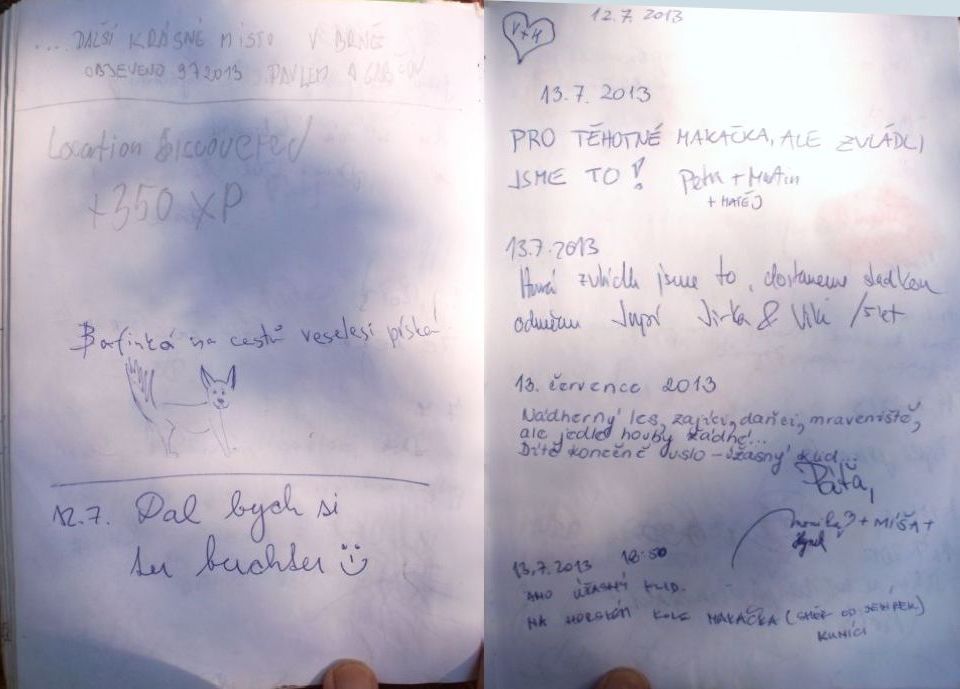 .... DALŠÍ KRÁSNÉ MÍSTO V BRNĚ
OBJEVENO 9.7.2013 PAVLEM A
Location Discovered
+350 XP
na cestu veselesi píská
12.7. Dal bych si
tu buchtu
V+H
12.7.2013
13.7.2013
PRO TĚHOTNÉ MAKAČKA, ALE ZVLÁDLI
JSME TO! Petra + Martin
+ MATĚJ
13.7.2013
jsme to, dostaneme sladkou
odměnu Jupí Jirka & Viki /5let
13. července 2013
Nádherný les, zajíci, daňci, mraveniště,
ale jedlé houby žádné...
Dítě konečně uslo - úžasný klid...
Páťa,
monika + MÍŠA +
Hynek
13.7.2013 18:50
ANO ÚŽASNÝ KLID.
NA HORSKÉM KOLE MAKAČKA (SMĚR OD
KUNÍCI